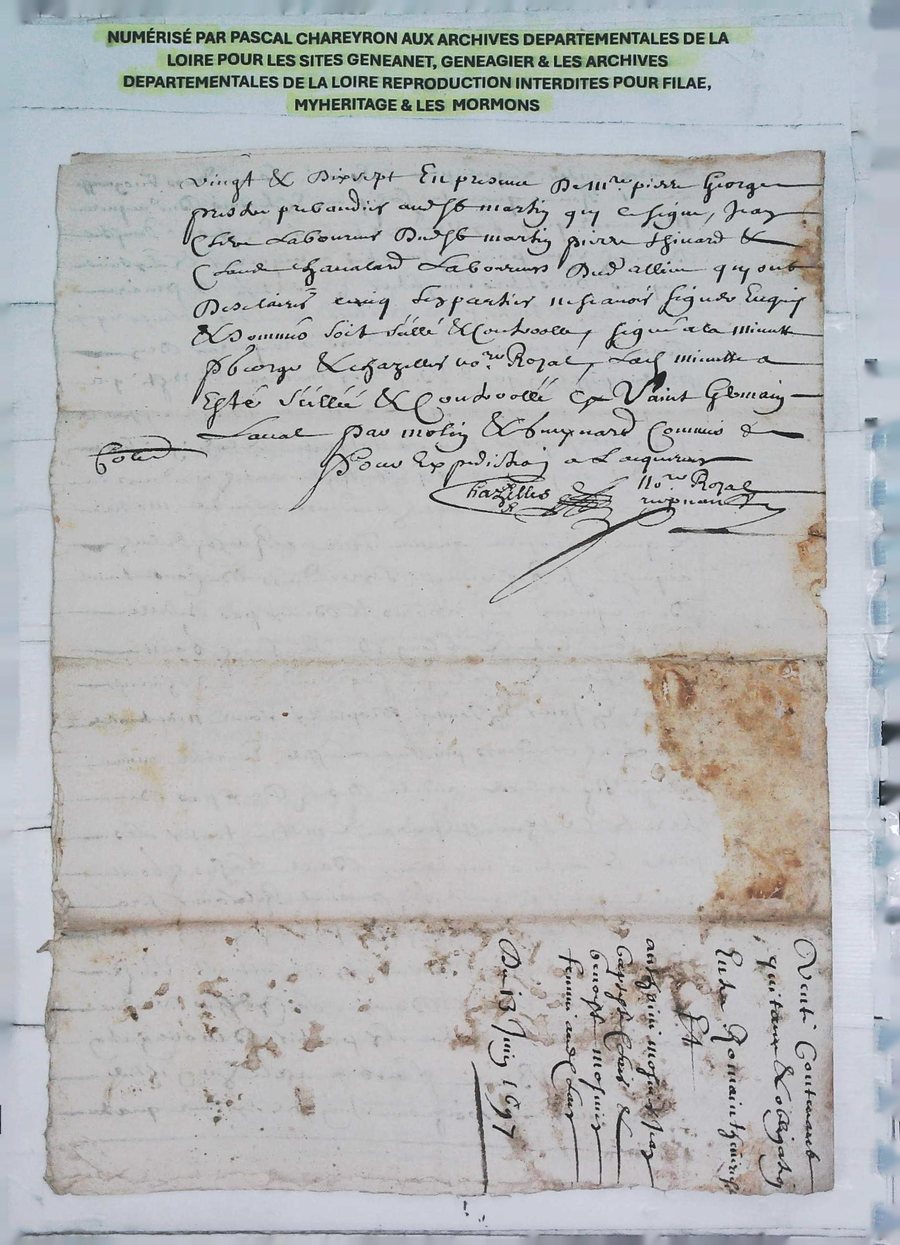 NUMÉRISÉ PAR PASCAL CHAREYRON AUX ARCHIVES DEPARTEMENTALES DE LA
LOIRE POUR LES SITES GENEANET, GENEAGIER & LES ARCHIVES
DEPARTEMENTALES DE LA LOIRE REPRODUCTION INTERDITES POUR FILAE,
MYHERITAGE & LES MORMONS
vingt & Dixsept En presence De mre pierre George
prestre prebandier audt St martin qui a signe, Jean
Laboureur Dudt St martin pierre &
Claude Chavalard Laboureurs Dud allieu qui ont
Desclairé les parties ne scavoir signer Enquis
& Sommés soit séllé & Controollé, signé a la minutte
P George & Chazelles nore Royal, Lad minutte a
Esté séllée & Controollée a Saint Germain
Laval par molin & Commis
Pour Expedition a Lacquereur
Chazelles
Nore Royal
Vente Contenant
quitance & obligation
Entre Romain
Et
&
benoist mosnier
femme aud
Du 13 Juin 1697